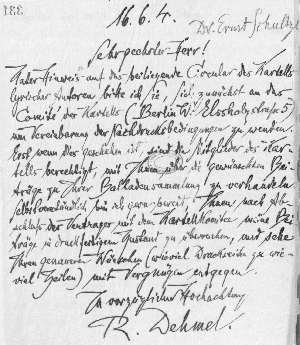 331
16.6.4.
Dr. Ernst Schultze
Sehr geehrter Herr!
Unter Hinweis auf das beiliegende Circular des Kartells
lyrischer Autoren bitte ich Sie, sich zunächst an das
Comité des Kartells (Berlin W. Elssholzstrasse 5
um Vereinbarung der Nachdrucksbedingungen zu wenden.
Erst wenn dies geschehen ist, sind die Mitglieder des Kar-
tells berechtigt, mit Ihnen über die gewünschten Bei-
träge zu Ihrer Balladensammlung zu verhandeln
Selbstverständlich bin ich gern bereit, Ihnen nach Ab-
schluss des Vertrages mit dem Kartellkomitee meine Bei-
träge in druckfertigem Zustand zu überweisen, und sehe
Ihren genaueren Wünschen (wieviel Druckseiten zu wie-
viel Zeilen) mit Vergnügen entgegen.
In vorzüglicher Hochachtung
R. Dehmel.